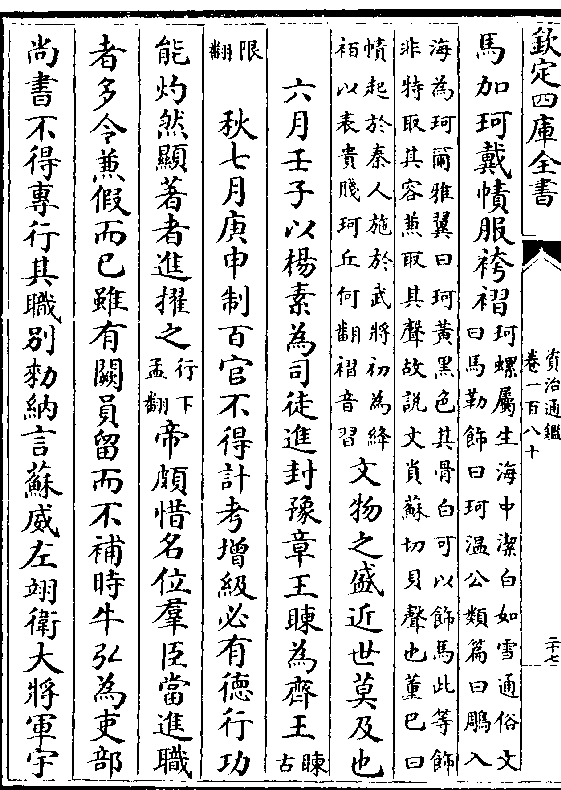 欽定四庫全書
資治通鑑
卷一百八十
二十七
馬加珂戴幘服袴褶珂螺屬生海中潔白如雪通俗文曰馬勒飾曰珂溫公類篇曰鵰入
海為珂爾雅翼曰珂黃黑色其骨白可以飾馬此等飾
非特取其容兼取其聲故說文貟蘇切貝聲也董巴曰
幘起於秦人施於武將初為絳袹以表貴賤珂丘何翻褶音習文物之盛近世莫及也
六月壬子以楊素為司徒進封豫章王暕為齊王暕古
限翻　秋七月庚申制百官不得計考增級必有德行功
能灼然顯著者進擢之行下孟翻帝頗惜名位羣臣當進職
者多令兼假而已雖有闕員留而不補時牛弘為吏部
尚書不得專行其職別勑納言蘇威左翊衛大將軍宇